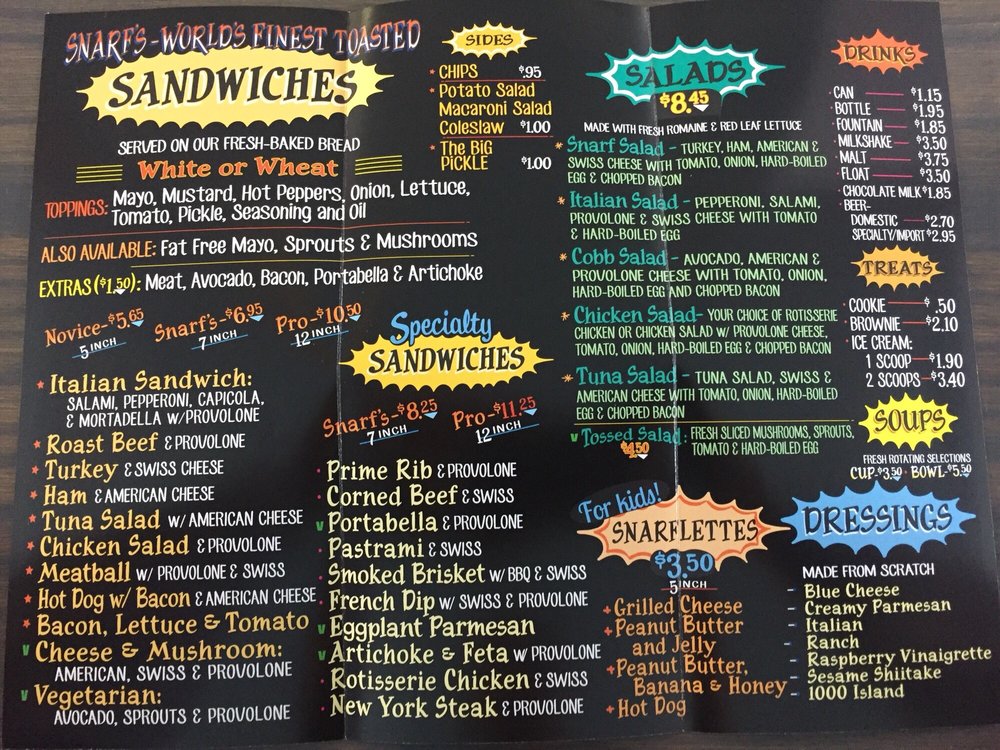 SNARF'S-WORLD'S FINEST TOASTED
SANDWICHES
SERVED ON OUR FRESH-BAKED BREAD
White or Wheat
TOPPINGS: Mayo, Mustard, Hot Peppers, Onion, Lettuce,
Tomato, Pickle, Seasoning and Oil
ALSO AVAILABLE: Fat Free Mayo, Sprouts & Mushrooms
EXTRAS ($1.50): Meat, Avocado, Bacon, Portabella & Artichoke
Novice-$5.65
5 INCH
Snarf's-$6.95
7 INCH
Pro-$10.50
12 INCH
* Italian Sandwich:
SALAMI, PEPPERONI, CAPICOLA,
& MORTADELLA W/PROVOLONE
* Roast Beef & PROVOLONE
* Turkey & SWISS CHEESE
* Ham & AMERICAN CHEESE
* Tuna Salad W/ AMERICAN CHEESE
* Chicken Salad & PROVOLONE
* Meatball W/ PROVOLONE & SWISS
* Hot Dog w/ Bacon & AMERICAN CHEESE
* Bacon, Lettuce & Tomato
V Cheese & Mushroom:
AMERICAN, SWISS & PROVOLONE
V Vegetarian:
AVOCADO, SPROUTS & PROVOLONE
Specialty
SANDWICHES
Snarf's-$8.25
7 INCH
Pro-$11.25
12 INCH
· Prime Rib & PROVOLONE
· Corned Beef & SWISS
V Portabella & PROVOLONE
· Pastrami & SWISS
· Smoked Brisket W/ BBQ & SWISS
· French Dip W/ SWISS & PROVOLONE
V Eggplant Parmesan
V Artichoke & Feta W PROVOLONE
· Rotisserie Chicken & SWISS
· New York Steak & PROVOLONE
SIDES
* CHIPS $.95
* Potato Salad
Macaroni Salad
Coleslaw $1.00
* The BIG
PICKLE $1.00
SALADS
$8.45
MADE WITH FRESH ROMAINE & RED LEAF LETTUCE
* Snarf Salad - TURKEY, HAM, AMERICAN &
SWISS CHEESE WITH TOMATO, ONION, HARD-BOILED
EGG & CHOPPED BACON
* Italian Salad - PEPPERONI, SALAMI,
PROVOLONE & SWISS CHEESE WITH TOMATO
& HARD-BOILED EGG
* Cobb Salad - AVOCADO, AMERICAN &
PROVOLONE CHEESE WITH TOMATO, ONION,
HARD-BOILED EGG AND CHOPPED BACON
* Chicken Salad- YOUR CHOICE OF ROTISSERIE
CHICKEN OR CHICKEN SALAD W/ PROVOLONE CHEESE,
TOMATO, ONION, HARD-BOILED EGG & CHOPPED BACON
* Tuna Salad - TUNA SALAD, SWISS &
AMERICAN CHEESE WITH TOMATO, ONION, HARD-BOILED
EGG & CHOPPED BACON
V Tossed Salad: FRESH SLICED MUSHROOMS, SPROUTS,
$4.50 TOMATO & HARD-BOILED EGG
For kids!
SNARFLETTES
$3.50
5 INCH
+ Grilled Cheese
+ Peanut Butter
and Jelly
+ Peanut Butter,
Banana & Honey
+ Hot Dog
DRINKS
· CAN $1.15
· BOTTLE $1.95
· FOUNTAIN $1.85
· MILKSHAKE $3.50
· MALT $3.75
· FLOAT $3.50
· CHOCOLATE MILK $1.85
· BEER-
DOMESTIC $2.70
SPECIALTY/IMPORT $2.95
TREATS
· COOKIE $.50
· BROWNIE $2.10
· ICE CREAM:
1 SCOOP $1.90
2 SCOOPS $3.40
SOUPS
FRESH ROTATING SELECTIONS
CUP-$3.50 · BOWL-$5.50
DRESSINGS
MADE FROM SCRATCH
- Blue Cheese
- Creamy Parmesan
- Italian
- Ranch
- Raspberry Vinaigrette
- Sesame Shiitake
- 1000 Island